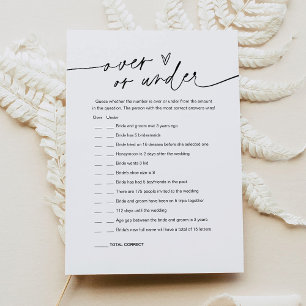 over
or under
Guess whether the number is over or under from the amount
in the question. The person with the most correct answers wins!
Over Under
Bride and groom met 3 years ago
Bride has 5 bridesmaids
Bride tried on 16 dresses before she selected one
Honeymoon is 2 days after the wedding
Bride wants 3 kid
Bride's shoe size is 8
Bride has had 5 boyfriends in the past
There are 175 people invited to the wedding
Bride and groom have been on 6 trips together
112 days until the wedding
Age gap between the bride and groom is 3 years
Bride's new full name will have a total of 15 letters
TOTAL CORRECT